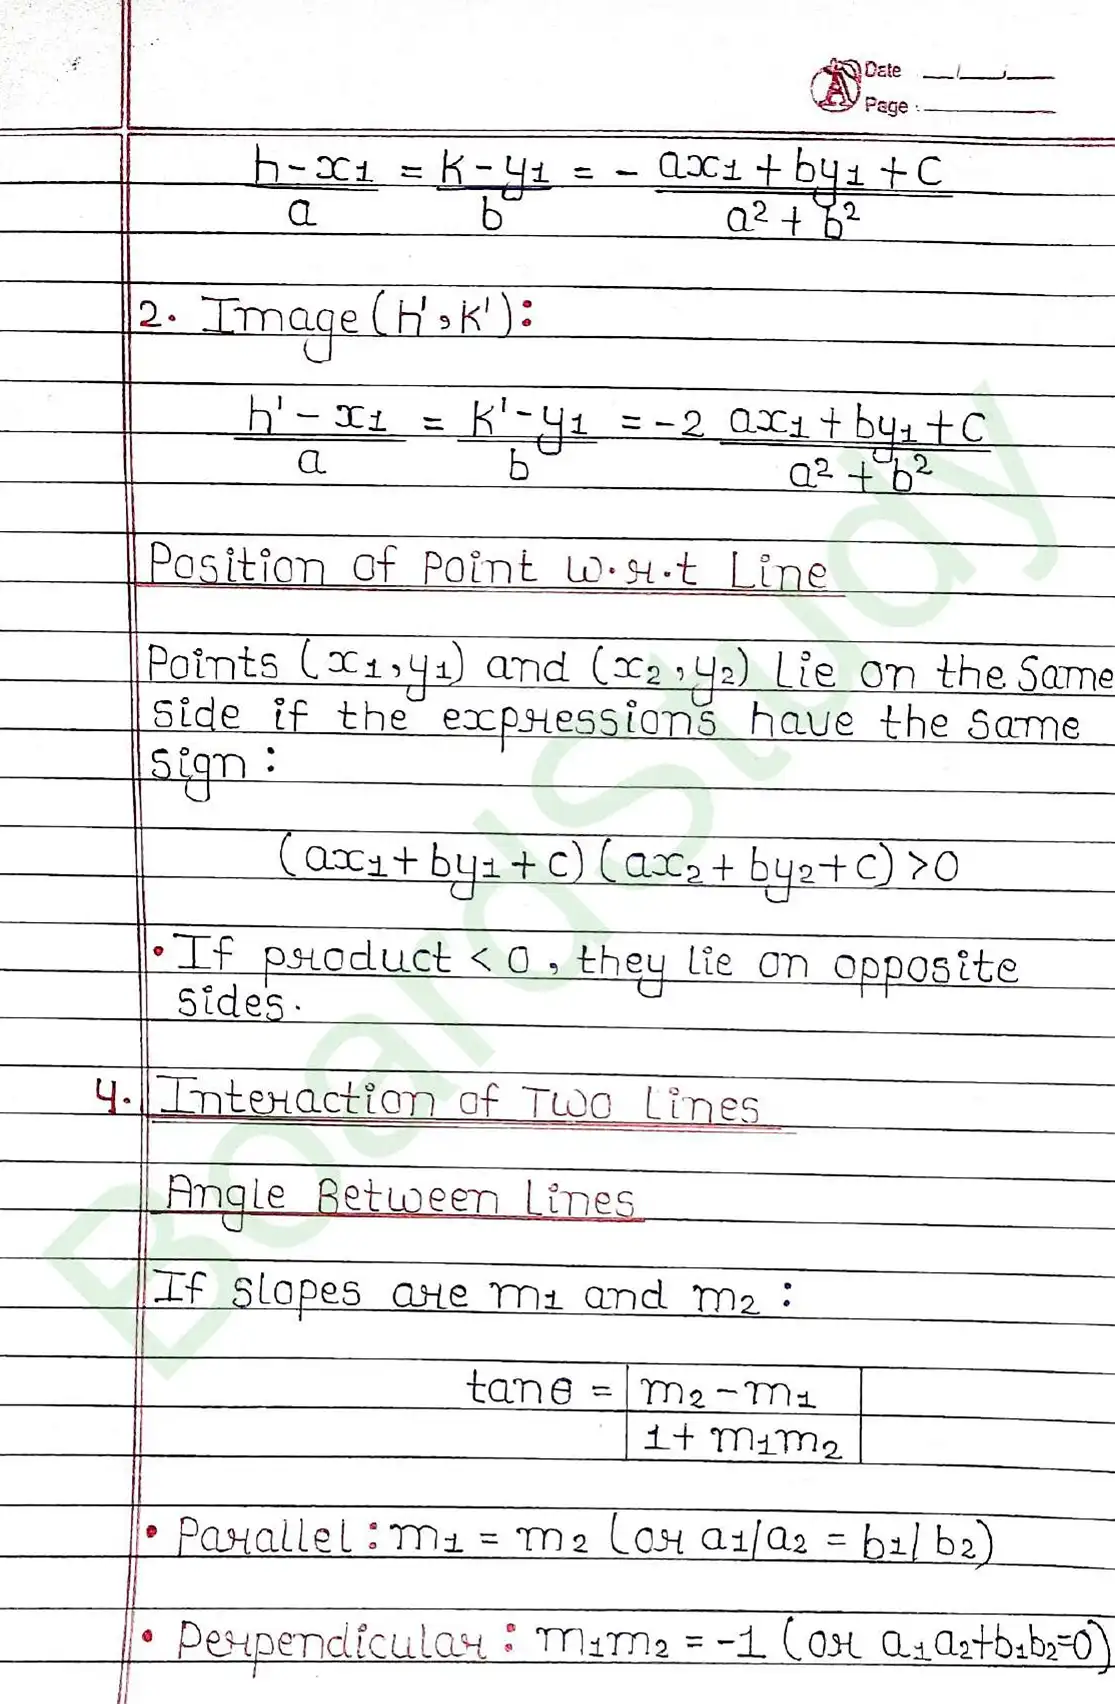 Date
Page :
h-x1/a = k-y1/b = - ax1+by1+c/a²+b²
2. Image (h',k'):
h'-x1/a = k'-y1/b = -2 ax1+by1+c/a²+b²
Position of Point w.r.t Line
Points (x1,y1) and (x2,y2) Lie on the same
side if the expressions have the same
sign :
(ax1+by1+c)(ax2+by2+c)>0
• If product < 0, they lie on opposite
sides.
4. Interaction of Two Lines
Angle Between Lines
If slopes are m1 and m2 :
tanθ = |m2-m1/1+m1m2|
• Parallel : m1 = m2 (or a1/a2 = b1/b2)
• Perpendicular : m1m2 = -1 (or a1a2+b1b2=0)
BoardStudy